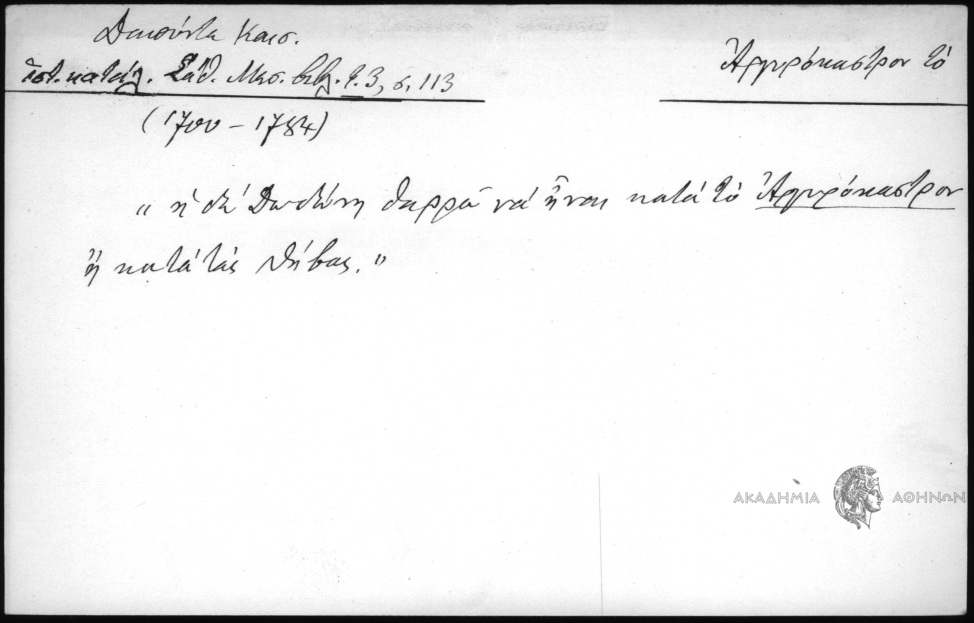 Δαπόντε Καισ.
ἱστ. κατάλ. Σάθ. Μεσ. βιβλ. τ. 3, σ. 113
Ἀργυρόκαστρον τὸ
(1700 - 1784)
„ ἡ δὲ Δωδώνη θαρρῶ νὰ ἦναι κατὰ τὸ Ἀργυρόκαστρον
ἢ κατὰ τὰς Θήβας.”
ΑΚΑΔΗΜΙΑ ΑΘΗΝΩΝ